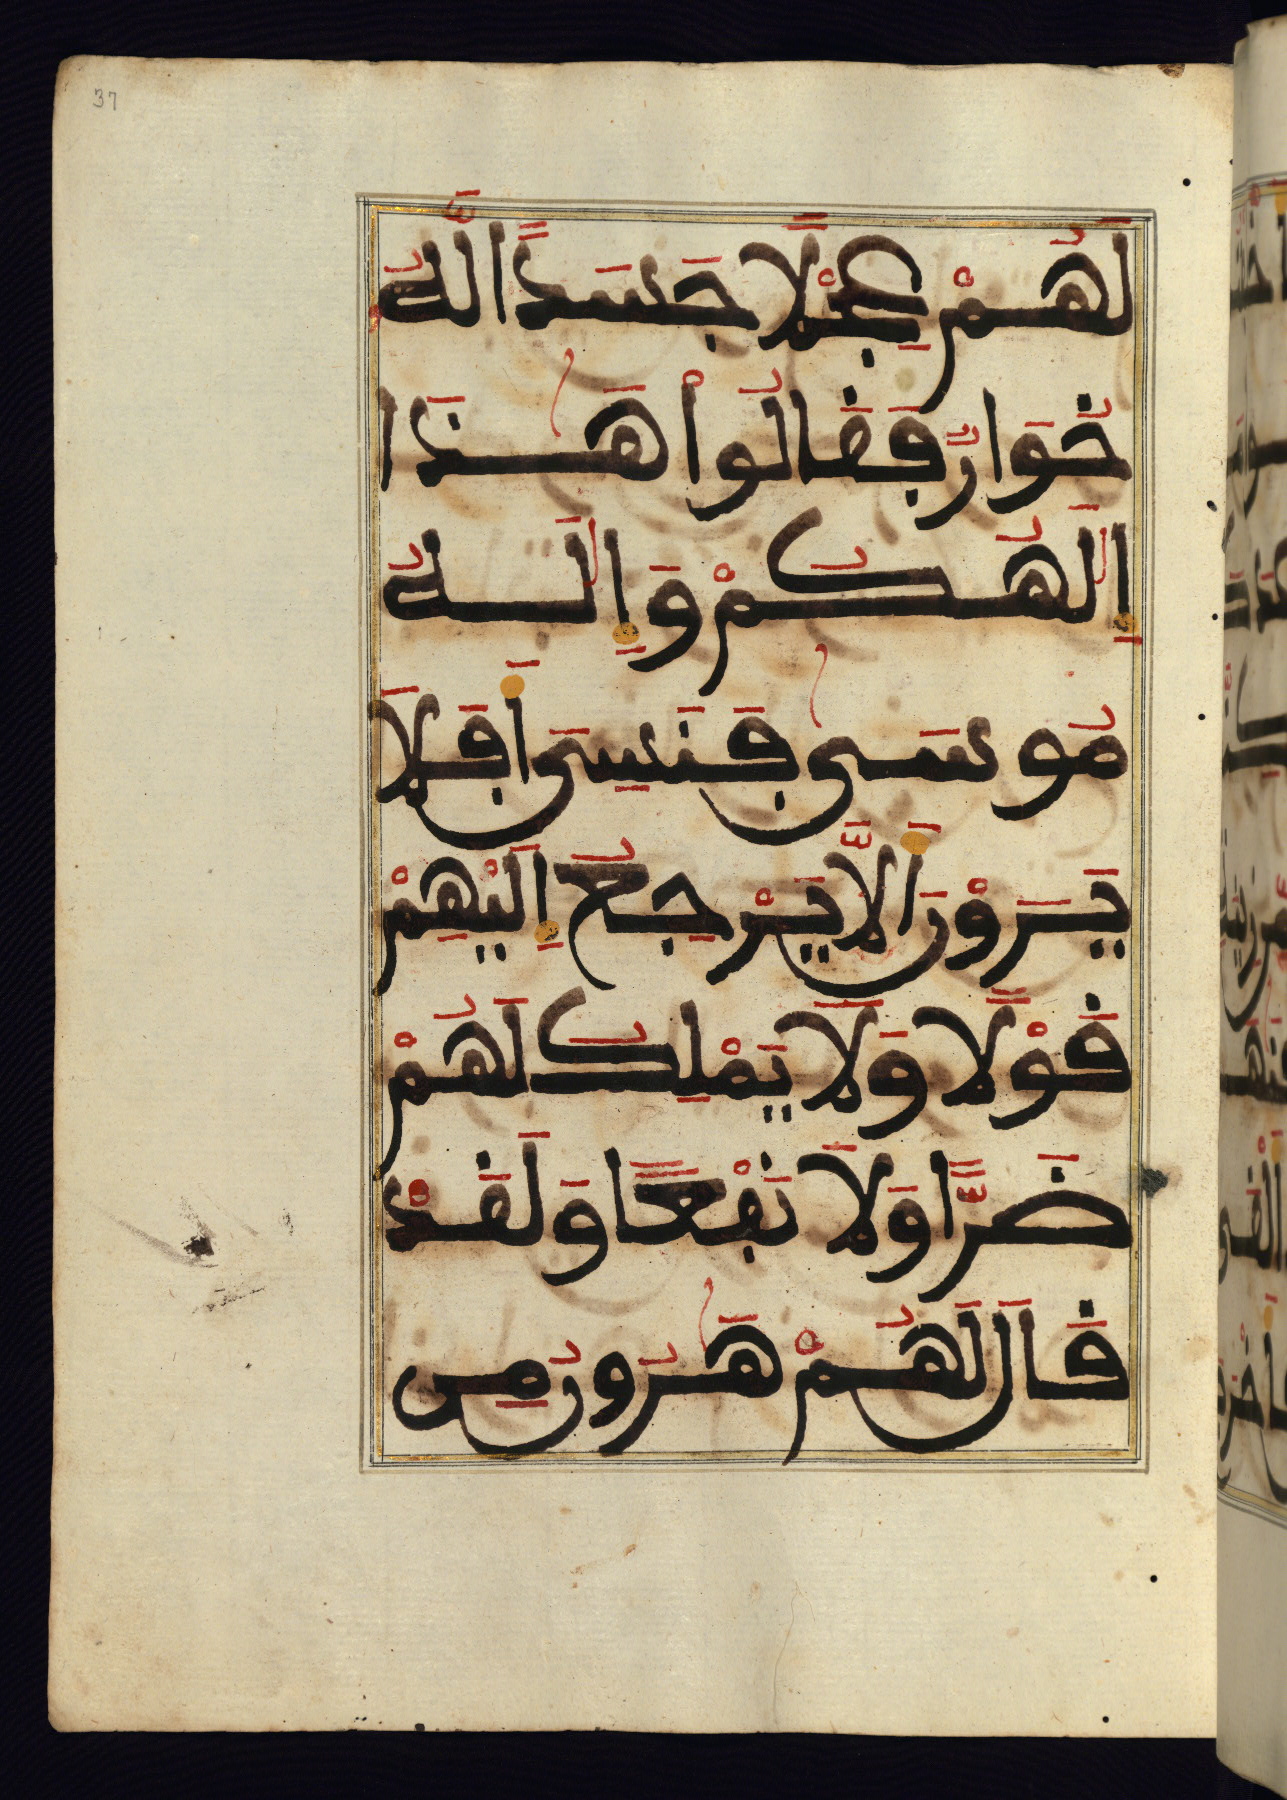 37
لَهُمْ عِجْلًا جَسَدًا لَّهُ
خُوَارٌ فَقَالُواْ هَٰذَا
إِلَٰهُكُمْ وَإِلَٰهُ
مُوسَىٰ فَنَسِيَ أَفَلَا
يَرَوْنَ أَلَّا يَرْجِعُ إِلَيْهِمْ
قَوْلًا وَلَا يَمْلِكُ لَهُمْ
ضَرًّا وَلَا نَفْعًا وَلَقَدْ
قَالَ لَهُمْ هَٰرُونُ مِن